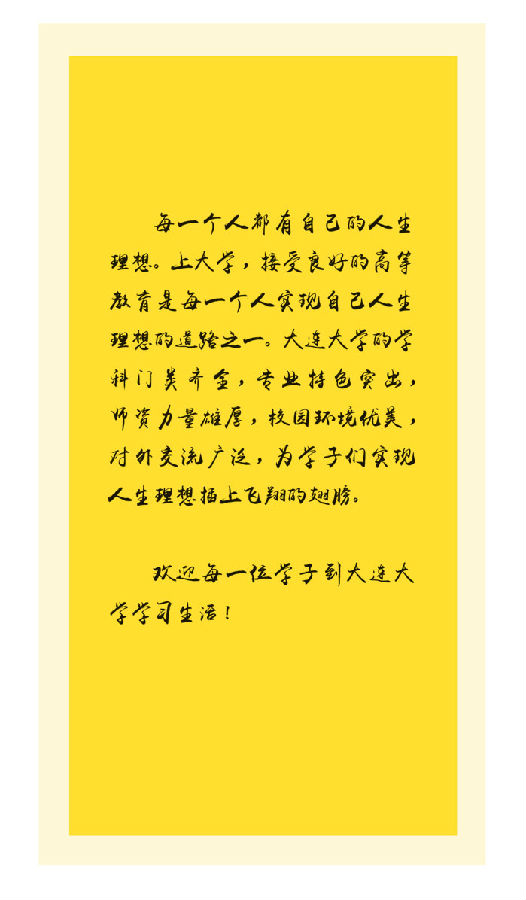 每一个人都有自己的人生
理想。上大学，接受良好的高等
教育是每一个人实现自己人生
理想的道路之一。大连大学的学
科门类齐全，专业特色突出，
师资力量雄厚，校园环境优美，
对外交流广泛，为学子们实现
人生理想插上飞翔的翅膀。
欢迎每一位学子到大连大
学学习生活！